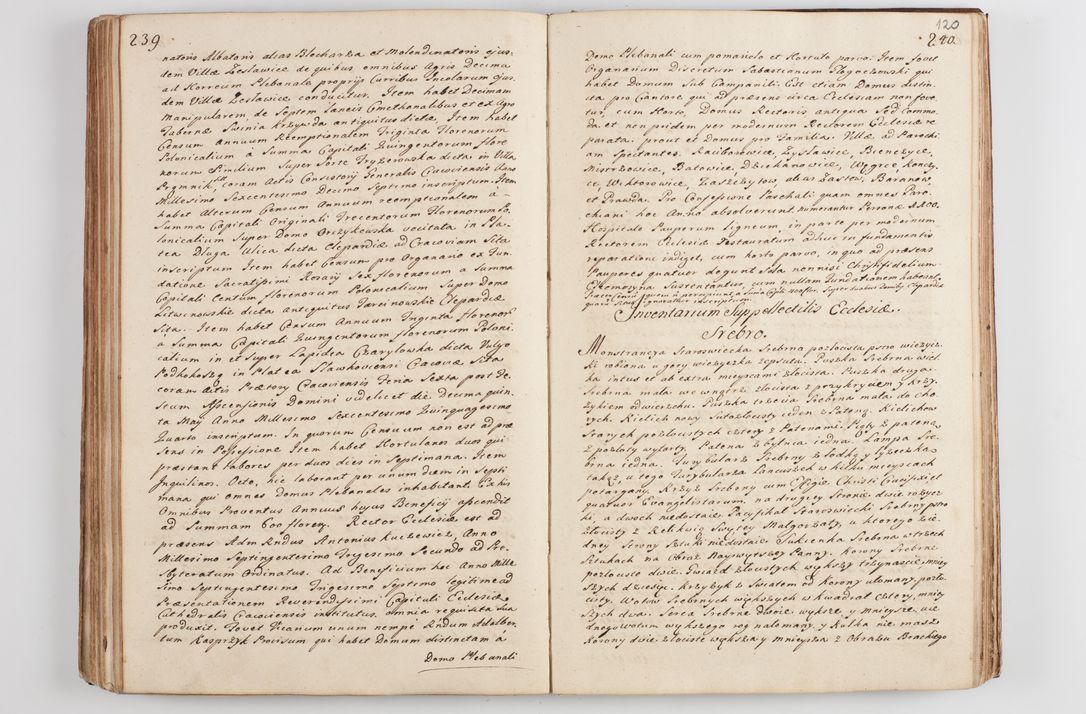 239
natoris Albatoris alias Blecharza et Molendinatoris ejus-
dem Villæ Zesławice de quibus omnibus Agris Decima
ad Horreum Plebanale proprijs Curribus Incolarum ejus-
dem Villæ Zesławice conducitur. Item habet Decimam
Manipularem de Septem Laneis Cmethonalibus et ex Agro
Tabernæ Swinia Krzywda antiquitus dictæ, Item habet
Censum Annuum Reemptionalem Triginta Florenorum
Polonicalium à Summa Capitali Quingentorum flore
norum Similium Super Sorte Tryzerowska dicta in Villa
Prgnnik, coram Actis Consistorij Generalis Cracoviensis Anno
Millesimo Sexcentesimo Decimo Septimo inscriptum. Item
habet Alterum Censum Annuum reemptionalem à
Summa Capitali Originali Trecentorum Florenorum Po
lonicalium Super Domo Orczykowska vocitata in Pla-
tea Długa Ulica dicta Clepardiæ ad Cracoviam Sita
inscriptum Item habet Censum pro Organario ex Fun-
datione Sacratissimi Rosarij Sex florenorum a Summa
Capitali Centum florenorum Polonicalium Super Domo
Litwinowskie dicta antiquitus Tarcinowskie Clepardiæ
Sita. Item habet Censum Annuum Triginta Florenor
à Summa Capitali Quingentorum florenorum Poloni-
calium in et Super Lapidea Czarylowska dicta Vulgo
Podkokoszą in Platea Sławkoviensi Cracoviæ Sita
coram Actis Prætorij Cracoviensis Feria Sexta post Fe-
stum Ascensionis Domini videlicet die Decima quin-
ta Maij Anno Millesimo Sexcentesimo Quinquagesimo
Quarto inscriptum. In quorum Censuum non est ad præ
sens in Possessione Item habet Hortulanos duos qui
præstant labores per duos dies in Septimana. Item
Inquilinos Octo, hic laborant per unum diem in Septi
mana qui omnes Domus Plebanales inhabitant. Ex his
Omnibus Proventus Annuus hujus Beneficij ascendit
ad Summam 600 floren. Rector Ecclesiæ est ad
præsens Adm Rndus Antonius Kuczewicz, Anno
Millesimo Septingentesimo Trigesimo Secundo ad Pre-
sbyteratum Ordinatus. Ad Beneficium hoc Anno Mille
simo Septingentesimo Trigesimo Septimo legitime ad
Præsentationem Reverendissimi Capituli Ecclesiæ
Cathedralis Cracoviensis institutus, omnia requisita Sua
produxit. Fovet Vicarium unum nempe Rndum Adalber-
tum Kasprzyk Provisum qui habet Domum distinctam à
Domo Plebanali
120
240.
Domo Plebanali cum pomario et Hortulo parvo. Item fovet
Organarium Discretum Sabastianum Głogoczowski qui
habet Domum Sub Campanili. Est etiam Domus distin-
cta pro Cantore qui ad præsens circa Ecclesiam non fove
tur, cum Horto, Domus Rectoris antiqua sed commo
da et non pridem per modernum Rectorem Ecclesiæ re
parata. prout et Domus pro Familia. Villæ ad Parochi
am Spectantes, Raciborowice, Zysławice, Bienczyce,
Mistrzowice, Batowice, Dziekanowice, Węgrzce koncz-
ce, Wiktorowice, Zaszczytow, alias Zastow, Baranowe
et Prawda. Pro Confessione Paschali quam omnes Paro-
chiani hoc Anno absolverunt numerantur Personæ 1200.
Hospitale Pauperum ligneum in parte per modernum
Rectorem Ecclesiæ restauratum adhuc in fundamentis
reparatione indiget, cum horto parvo, in quo ad præsens
Pauperes quatuor degunt Sola nonnisi Christifidelium
Elemosyna Sustentantur, cum nullam Fundationem habeat.
Inventarium Suppellectilis Ecclesiæ.
Srebro.
Monstrancya Staroswiecka Srebrna pozłocista pstro wiezycz-
ki robiona u gory wiezyczka zepsuta. Puszka Srebrna wiel-
ka intus et ab extra mieyscami złocista. Puszka druga
Srebrna mała we wnątrz złocista z przykryciem y krzy-
zykiem od wierzchu. Puszka trzecia Srebrna mała do cho-
rych. Kielich nowy Suto złocisty ieden z Pateną. Kielichow
Starych pozłocistych cztery z Patenami. Piąty z pateną
z pozłoty wytarty. Patena zbytnia iedna. Lampa Sre-
brna iedna. Turybularz Srebrny z łodką y łyzeczką
takąz, u tego Turybularza Lancuszek w kilku mieyscach
potargany. Krzyz Srebrny cum Effigie Christi Crucifixi et
quatuor Evangelistarum. na drugiey Stronie dwie rozycz-
ki, a dwoch niedostaie. Pacyfikał Staroswiecki Srebrny pstro
złocisty z Relikwią Swiętey Małgorzaty, u ktorego z ie-
dney Strony Sztuki niedostaie. Sukienka Srebrna w trzech
Sztukach na Obraz Nayswiętszey Panny. Korony Srebrne
pozłociste dwie. Gwiazd złocistych większych trzynascie, mniey
szych dziesięc. Krzyzyk z Swiatem od Korony ułomany pozło
cisty. Wotow Srebrnych większych w kwadrat cztery, mniey
Szych dwa. Serca Srebrne dwoie większe y mnieysze, u ie
dnego wotum większego rog nałomany, y Kołka nie masz.
Korony dwie złociste większa y mnieysza z Obrazu Brackiego